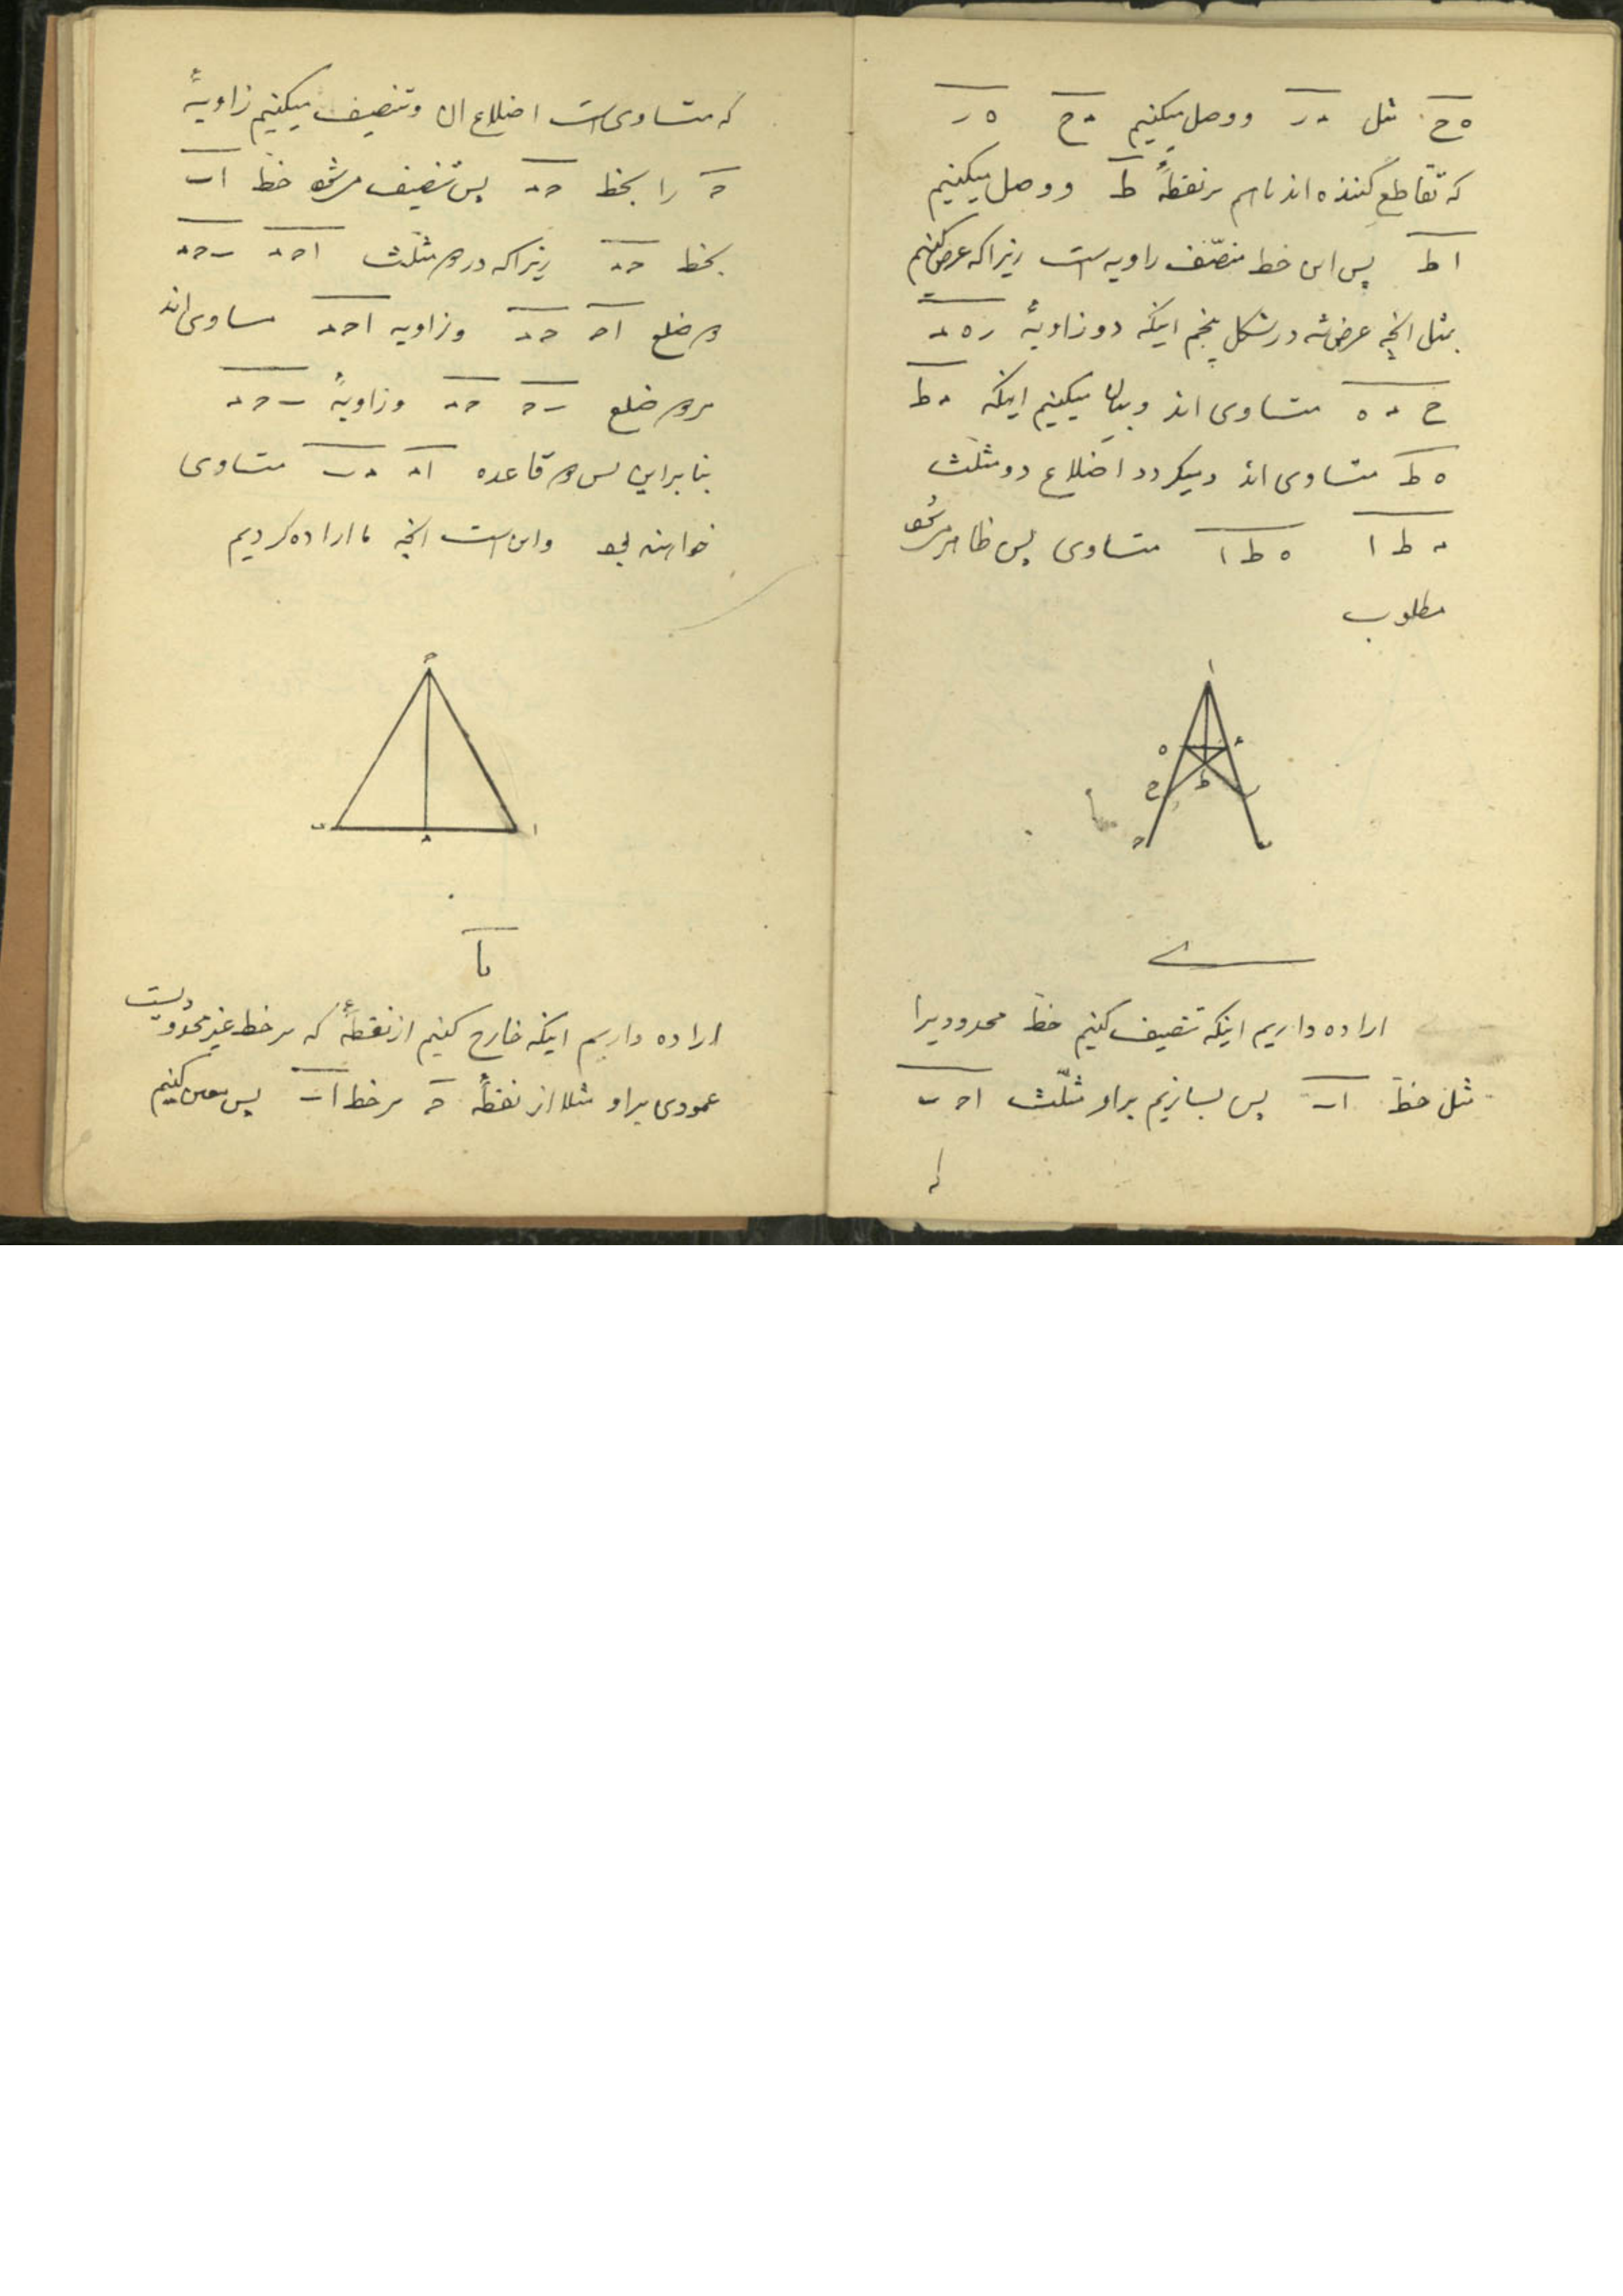 ه ح مثل د ر ووصل میکنیم د ح ه ر
که تقاطع کننده اند باهم بر نقطهٔ ط ووصل میکنیم
ا ط پس این خط منصّف زاویه است زیرا که عرض کنیم
بمثل انچه عرض شد در شکل پنجم اینکه دو زاویهٔ ر ه د
ح د ه متساوی اند و بیان میکنیم اینکه د ط
ه ط متساوی اند و میکردد اضلاع دو مثلّث
د ط ا ه ط ا متساوی پس ظاهر میشود
مطلوب
ا
ه د
ح ط ر
ح ب
ی
اراده داریم اینکه تنصیف کنیم خطّ محدودیرا
مثل خطّ اب پس بسازیم براو مثلّث ا ح ب
که
که متساوی است اضلاع ان و تنصیف میکنیم زاویهٔ
ح را بخط ح د پس تنصیف میشود خطّ اب
بخط ح د زیرا که در دو مثلّث ا ح د ب ح د
دو ضلع ا ح ح د و زاویه ا ح د مساوی اند
بر دو ضلع ب ح ح د و زاویهٔ ب ح د
بنا براین پس دو قاعده ا د د ب متساوی
خواهند بود واین است انچه ما اراده کردیم
ح
ب د ا
یا
اراده داریم اینکه خارج کنیم از نقطهٔ که بر خط غیر محدودیست
عمودی براو مثلا از نقطهٔ ح بر خط اب پس معین کنیم